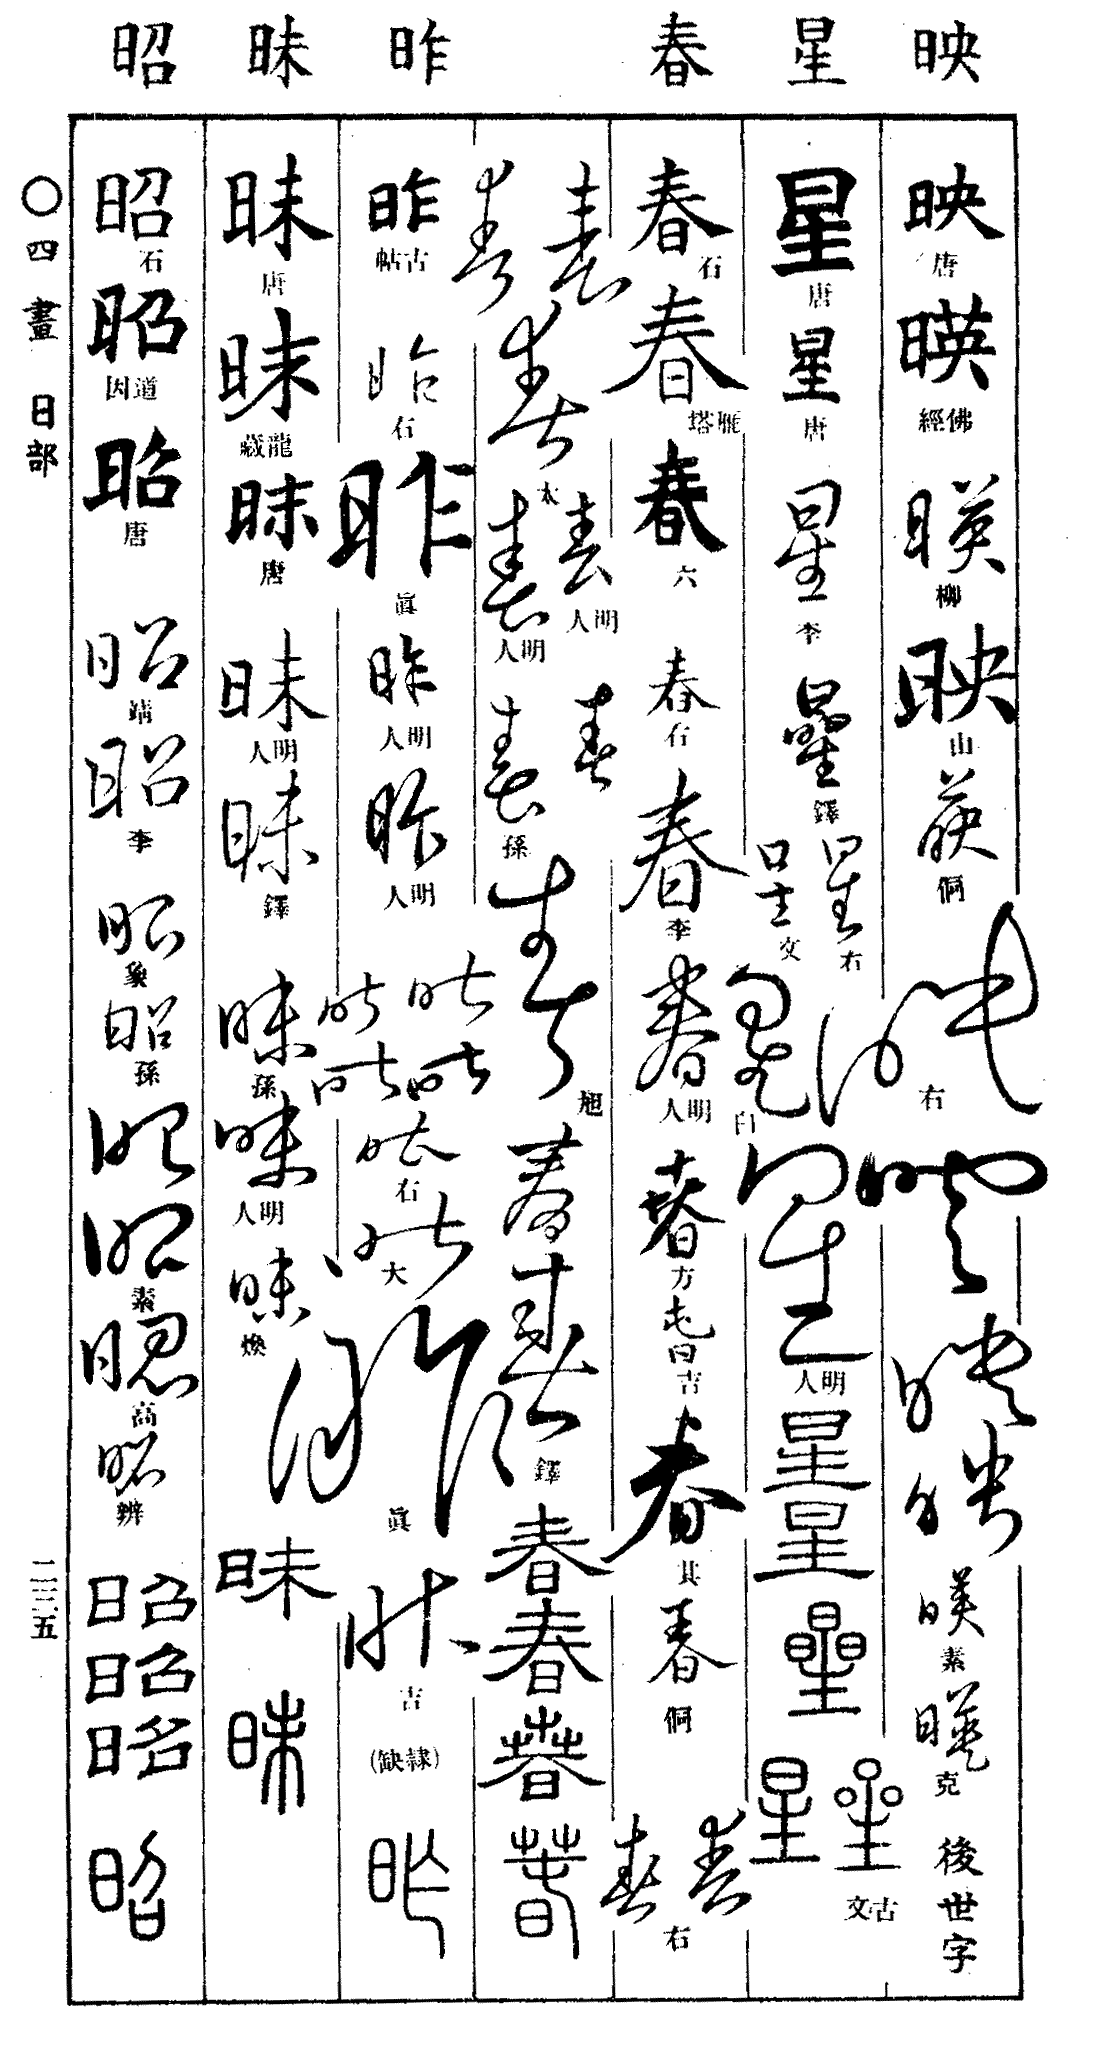 映 星 春 昨 昧 昭
映 唐 暎 佛經 暎 柳 映 山 暎 侗 映 右 映 映 映 暎 素 暎 克 後世字
星 唐 星 唐 星 李 星 鐸 星 右 星 文 星 白 星 明人 星 星 星 星 星 古文
春 石 春 雁塔 春 六 春 石 春 李 春 明人 春 方 春 吉 春 其 春 侗 春 春 右
春 春 春 太 春 明人 春 明人 春 春 孫 春 旭 春 春 鐸 春 春 春 春
昨 古帖 昨 石 昨 眞 昨 明人 昨 明人 昨 昨 昨 昨 昨 石 昨 大 昨 眞 昨 吉 (隷缺) 昨
昧 唐 昧 龍藏 昧 唐 昧 明人 昧 鐸 昧 孫 昧 明人 昧 煥 昧 昧
昭 石 昭 道因 昭 唐 昭 靖 昭 李 昭 象 昭 孫 昭 昭 素 昭 高 昭 辨 昭 昭 昭 昭
〇四畫 日部
二三五